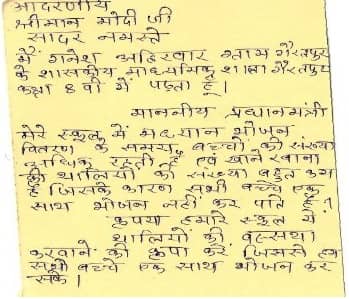 आदरणीय
श्रीमान मोदी जी
सादर नमस्ते
मैं गनेश अहिरवार ग्राम गैरतपुर
के शासकीय माध्यमिक शाला गैरतपुर
कक्षा 8 वी में पढ़ता हूँ।
माननीय प्रधानमंत्री
मेरे स्कूल में मध्यान भोजन
वितरण के समय बच्चों की संख्या
अधिक रहती है एवं खाने खाना
की थालियों की संख्या बहुत कम
है जिसके कारण सभी बच्चे एक
साथ भोजन नहीं कर पाते है।
कृपया हमारे स्कूल में
थालियों की व्यस्था
करवाने की कृपा करें जिससे हम
सभी बच्चे एक साथ भोजन कर
सके।